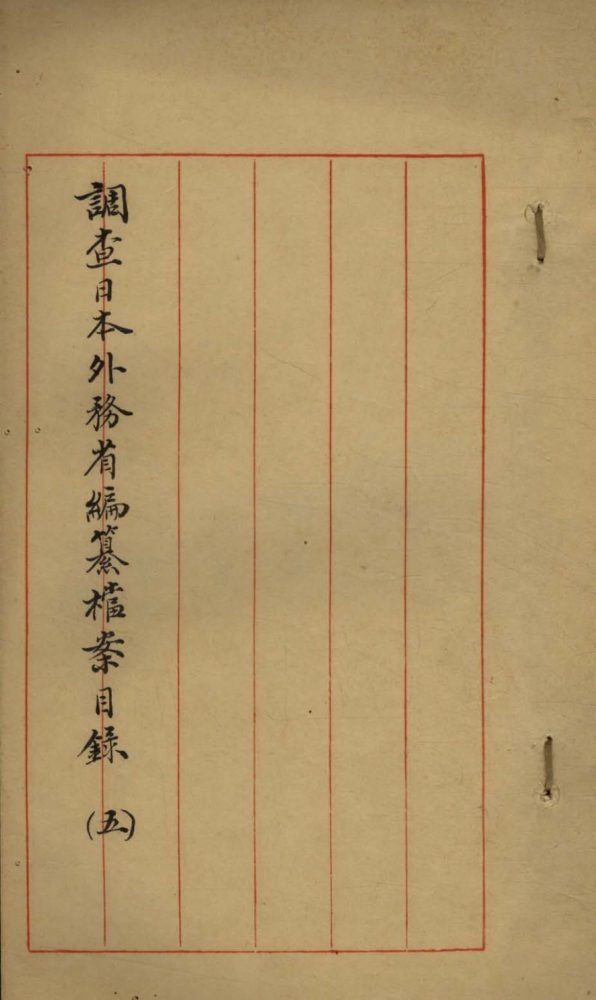 調查日本外務省編纂檔案目錄 (五)